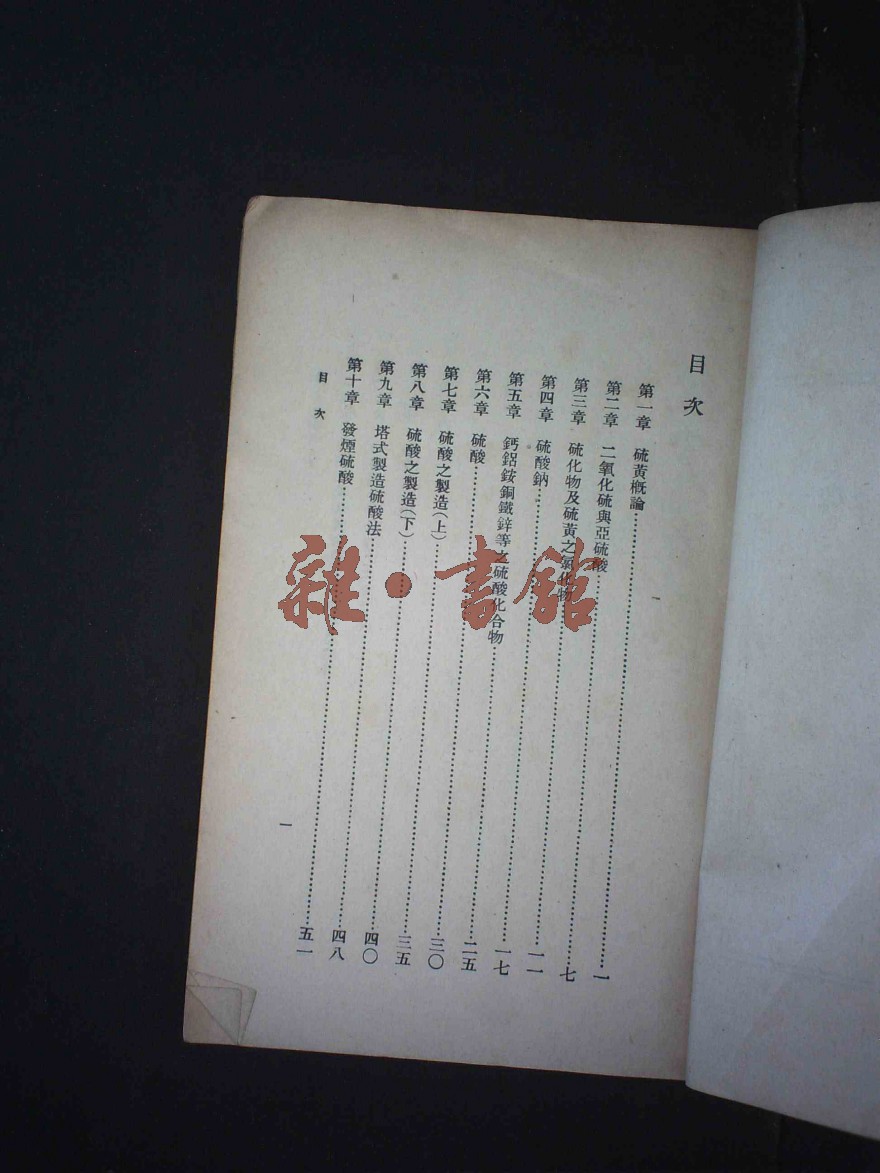 目次
第一章 硫黃概論……一
第二章 二氧化硫與亞硫酸……七
第三章 硫化物及硫黃之氯化物……一一
第四章 硫酸鈉……一七
第五章 鈣鋁銨銅鐵鋅等之硫酸化合物……二五
第六章 硫酸……三〇
第七章 硫酸之製造(上)……三五
第八章 硫酸之製造(下)……四〇
第九章 塔式製造硫酸法……四八
第十章 發煙硫酸……五一
目次
一
雜·書館